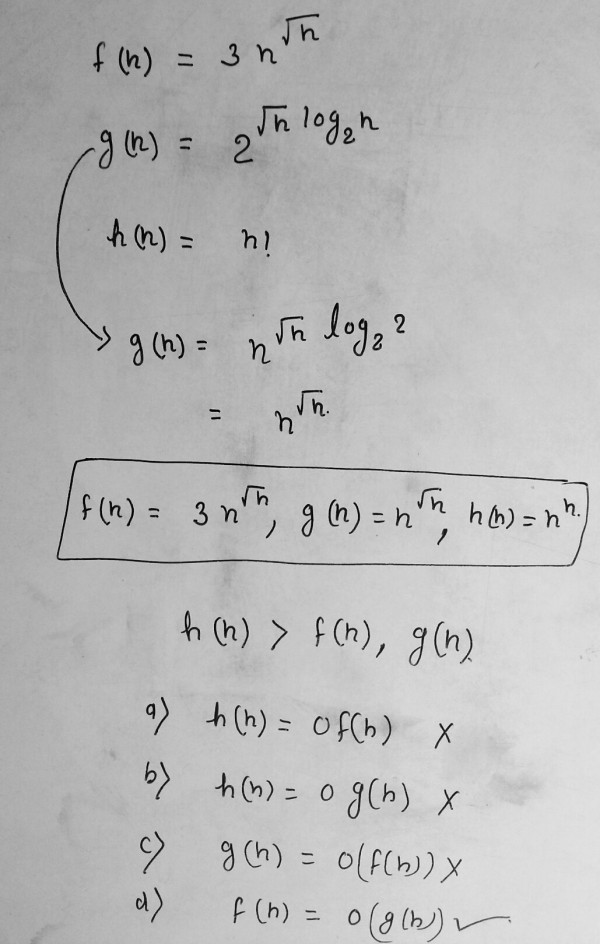 f(n) = 3 n^√n
g(n) = 2^√n log₂n
h(n) = n!
g(n) = n^√n log₂ 2
= n^√n.
f(n) = 3 n^√n, g(n) = n^√n, h(n) = n^n.
h(n) > f(n), g(n).
a) h(n) = O f(n) X
b) h(n) = O g(n) X
c) g(n) = O(f(n)) X
d) f(n) = O(g(n)) ✓